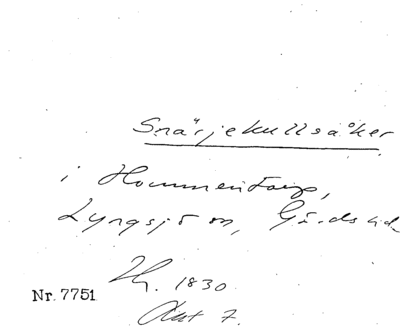 Snärjekullsåker
i Hommentorp,
Lyngsjö sn, Gärds hd.
Th. 1830
Akt 7.
Nr. 7751